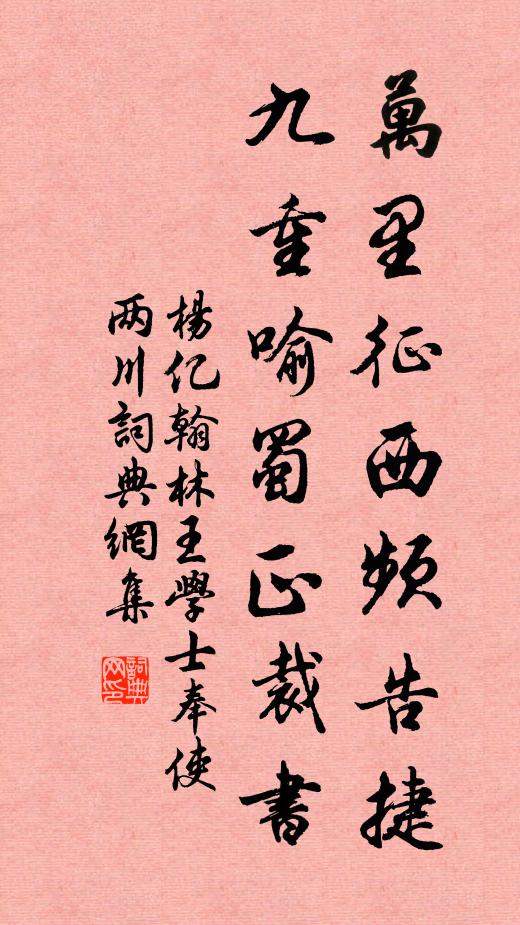 萬里征西頻告捷
九重喻蜀正裁書
楊亿翰林王學士奉使
两川詞典網集
詞典网印